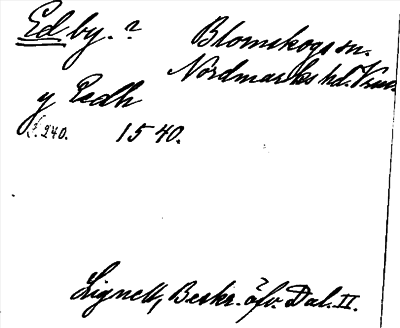 Edby. ? Blomskogs sn.
Nordmarks hd. Vrml.
y Eedh
S. 240. 1540.
Lignell, Beskr. öfv. Dal. II.